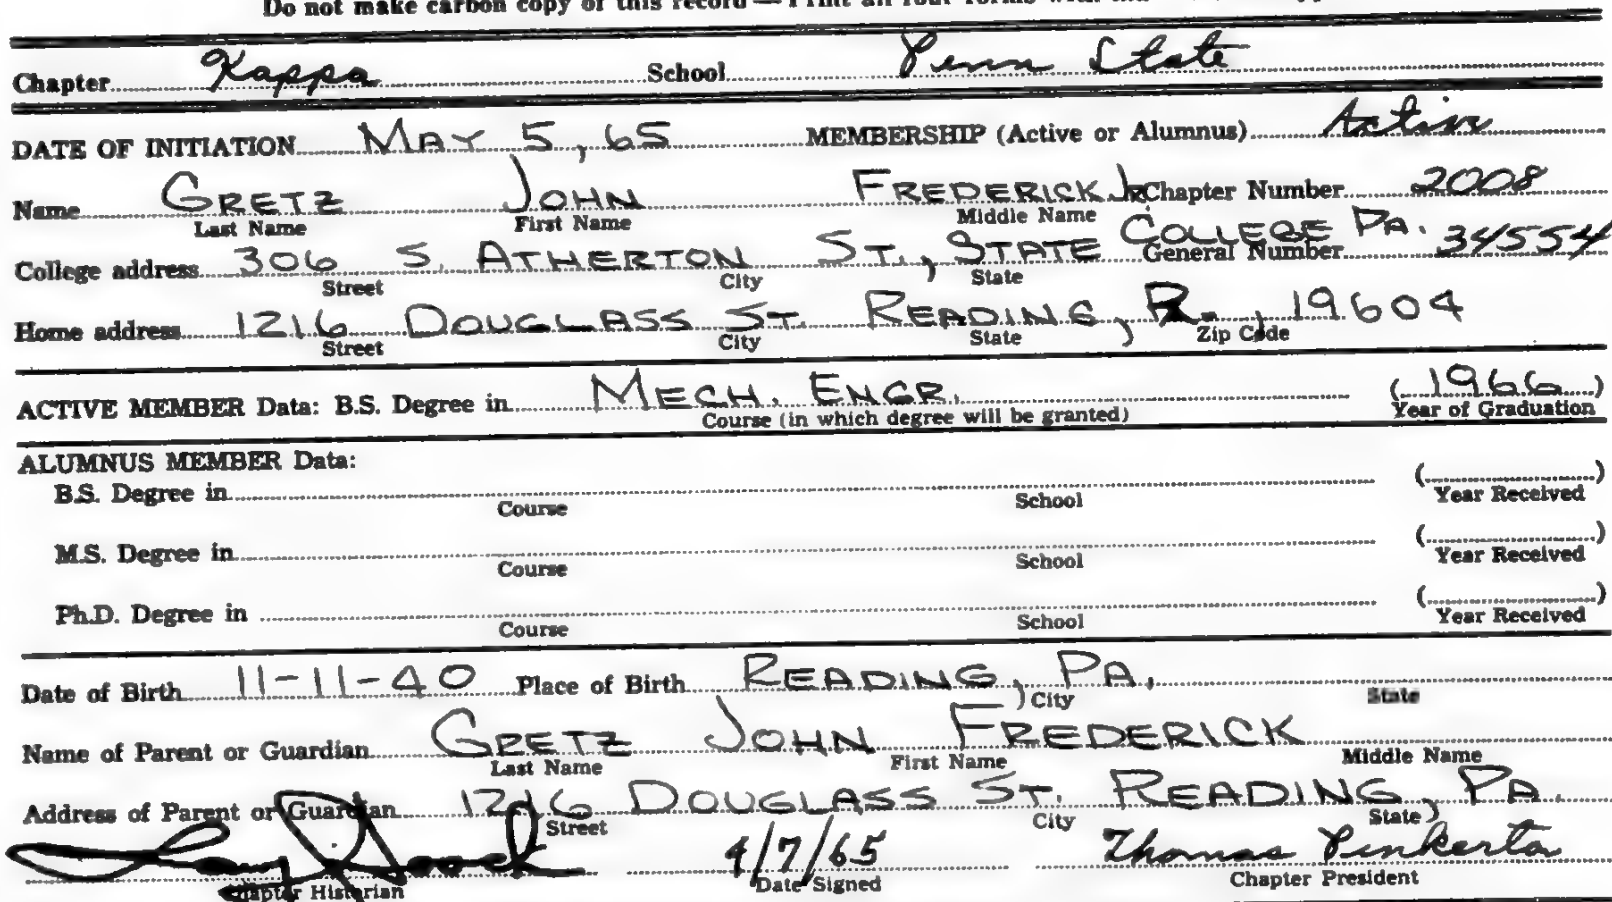 Do not make carbon copy of this record — Print all four forms with
Chapter Kappa School Penn State
DATE OF INITIATION MAY 5, 65 MEMBERSHIP (Active or Alumnus) Active
Name GRETZ JOHN FREDERICK JR Chapter Number 2008
Last Name First Name Middle Name
College address 306 S. ATHERTON ST., STATE COLLEGE PA. General Number 34554
Street City State
Home address 1216 DOUGLASS ST. READING, PA., 19604
Street City State Zip Code
ACTIVE MEMBER Data: B.S. Degree in MECH. ENGR. (1966)
Course (in which degree will be granted) Year of Graduation
ALUMNUS MEMBER Data:
B.S. Degree in ( )
Course School Year Received
M.S. Degree in ( )
Course School Year Received
Ph.D. Degree in ( )
Course School Year Received
Date of Birth 11-11-40 Place of Birth READING, PA.
City State
Name of Parent or Guardian GRETZ JOHN FREDERICK
Last Name First Name Middle Name
Address of Parent or Guardian 1216 DOUGLASS ST. READING, PA.
Street City State
4/7/65 Thomas Pinkerton
Chapter Historian Date Signed Chapter President